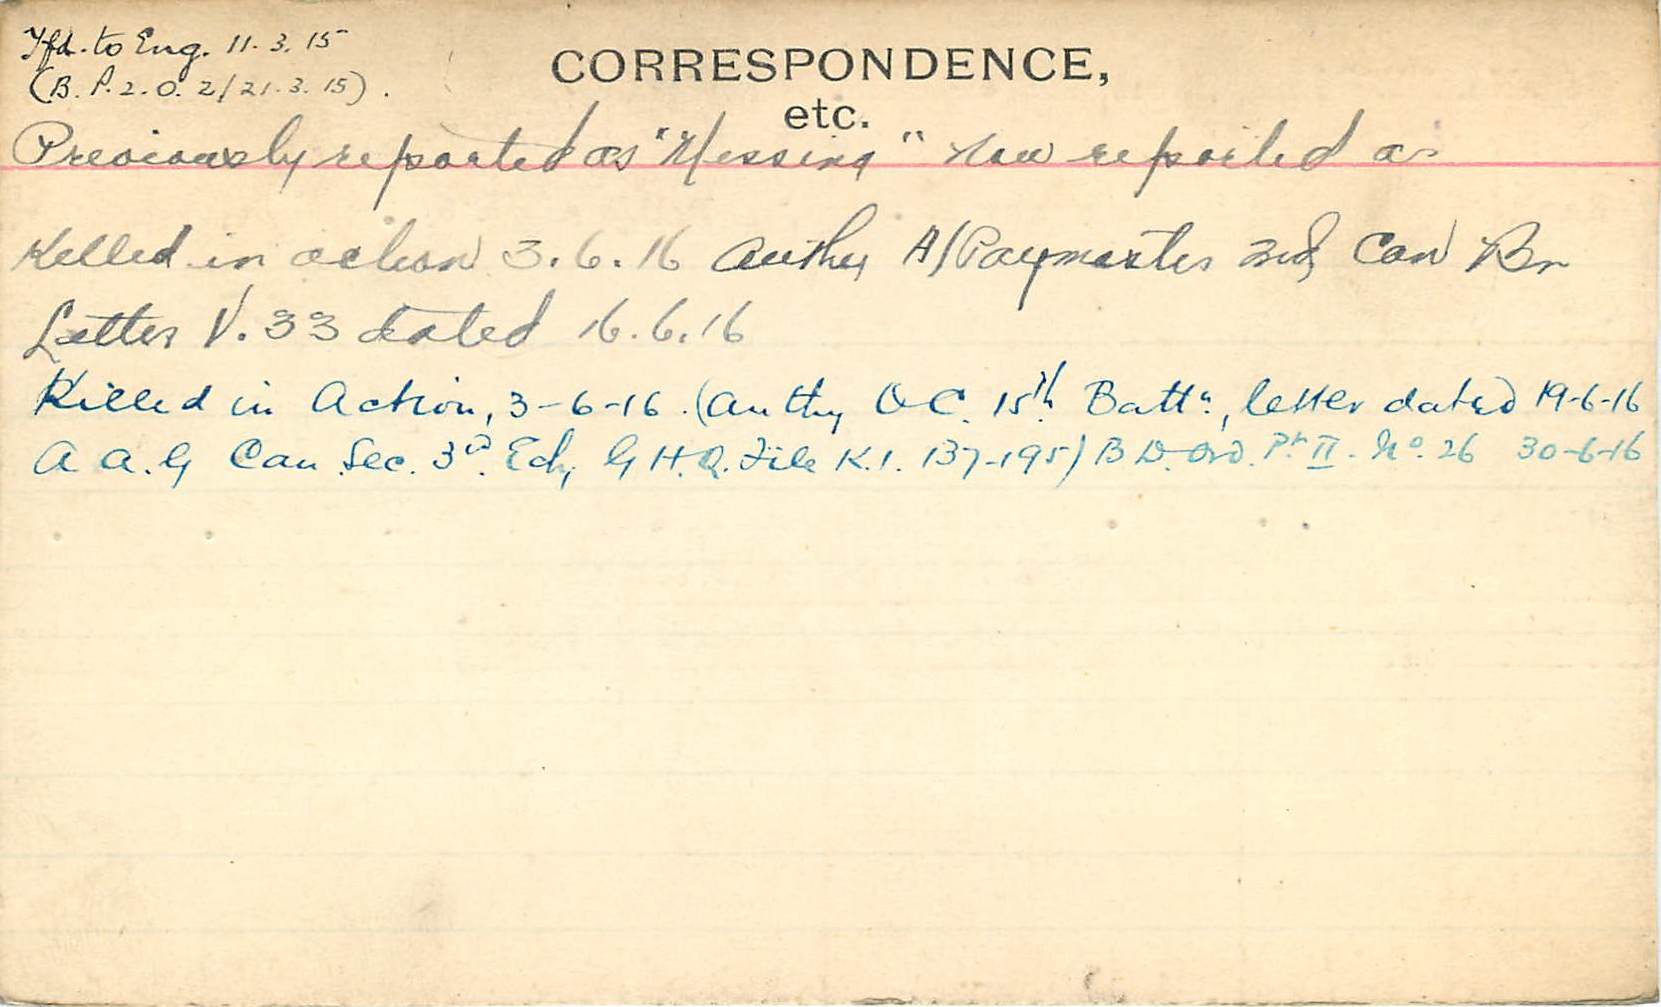 Tfd. to Eng. 11.3.15
(B.P.2.O. 2/21.3.15).
CORRESPONDENCE,
etc.
Previously reported as "Missing" now reported as
Killed in action 3.6.16 Authy A/Paymaster 3rd Can Br
Letter V.33 dated 16.6.16
Killed in Action, 3-6-16. (Authy OC. 15th Battn., letter dated 19-6-16
A A.G Can Sec. 3rd. Ech, G H.Q. File K.1. 137-195) B D. Ord. Pt II. No. 26 30-6-16